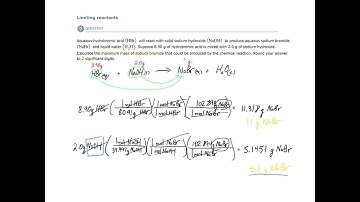 Limiting reactants
QUESTION
Aqueous hydrobromic acid (HBr) will react with solid sodium hydroxide (NaOH) to produce aqueous sodium bromide
(NaBr) and liquid water (H₂O). Suppose 8.90 g of hydrobromic acid is mixed with 2.0 g of sodium hydroxide.
Calculate the maximum mass of sodium bromide that could be produced by the chemical reaction. Round your answer
to 2 significant digits.
8.90g 2.0g g
HBr + NaOH(s) → NaBr + H₂O
8.90g HBr (1 mol HBr / 80.91 g HBr) (1 mol NaBr / 1 mol HBr) (102.89 g NaBr / 1 mol NaBr) = 11.318 g NaBr
11 g NaBr
2.0g NaOH (1 mol NaOH / 39.997 g NaOH) (1 mol NaBr / 1 mol NaOH) (102.894 g NaBr / 1 mol NaBr) = 5.1451 g NaBr
5.1 g NaBr